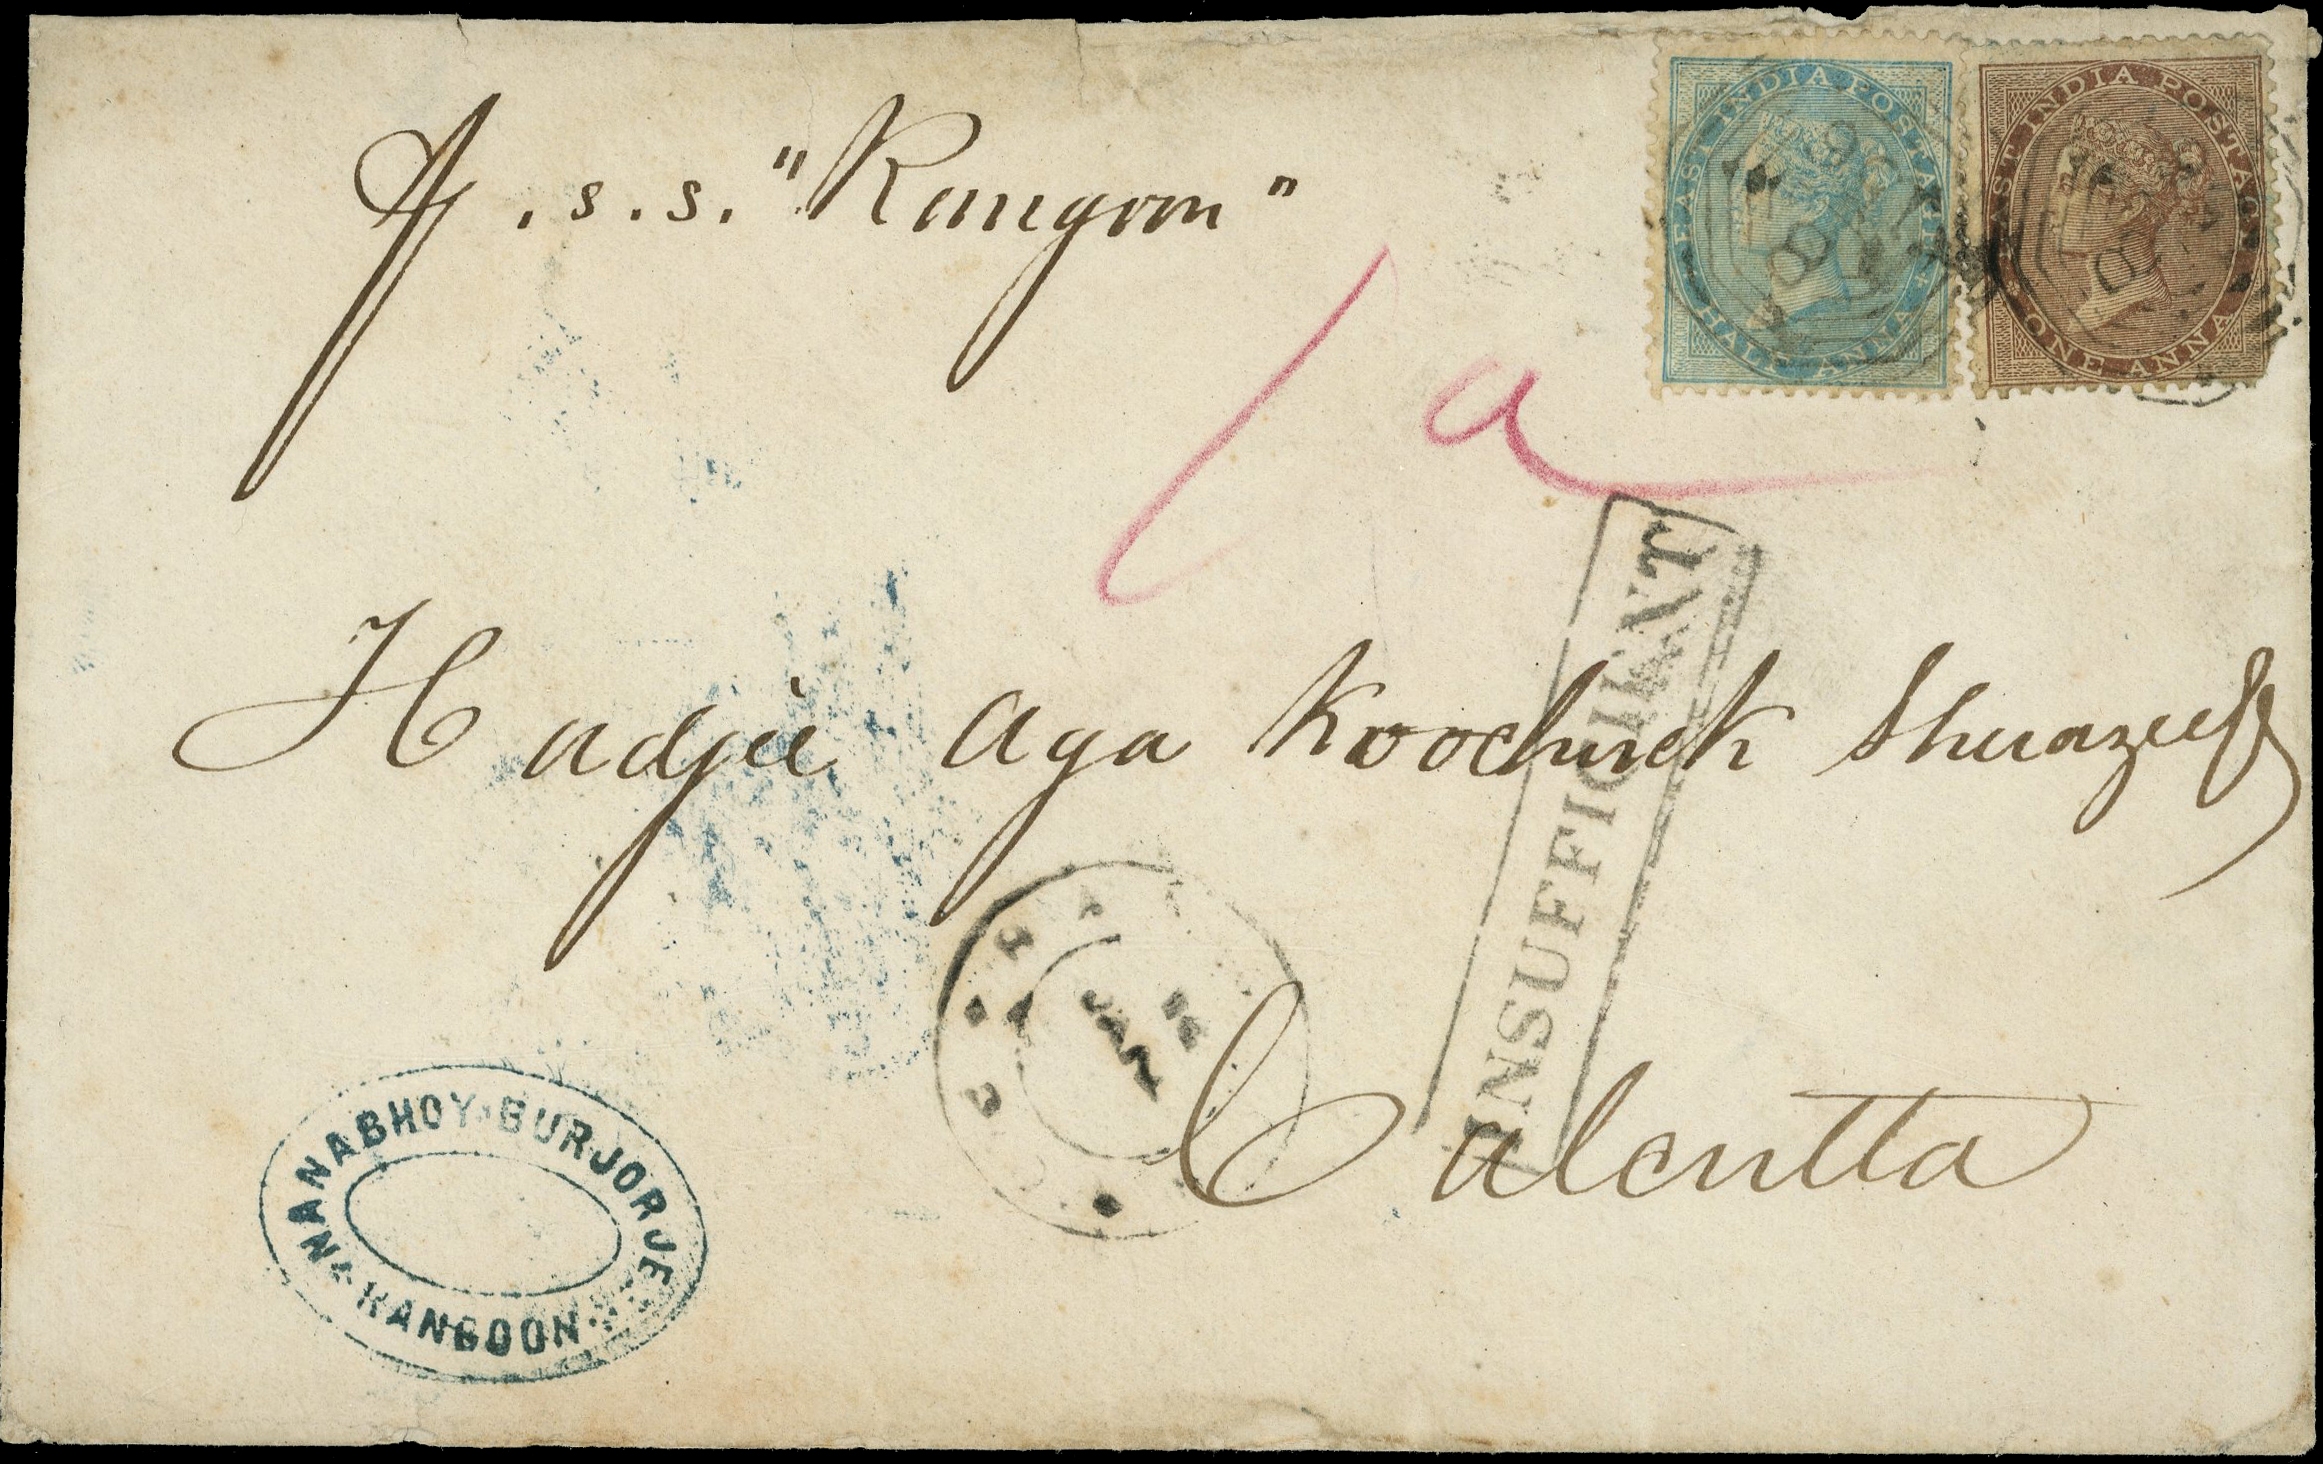 p. s.s. "Rangoon"
EAST INDIA POSTAGE
HALF ANNA
EAST INDIA POSTAGE
ONE ANNA
1 a
INSUFFICIENT
Hadjee Aga Koochuck Sheerazee
Calcutta
JA 7
NANABHOY BURJORJEE
RANGOON